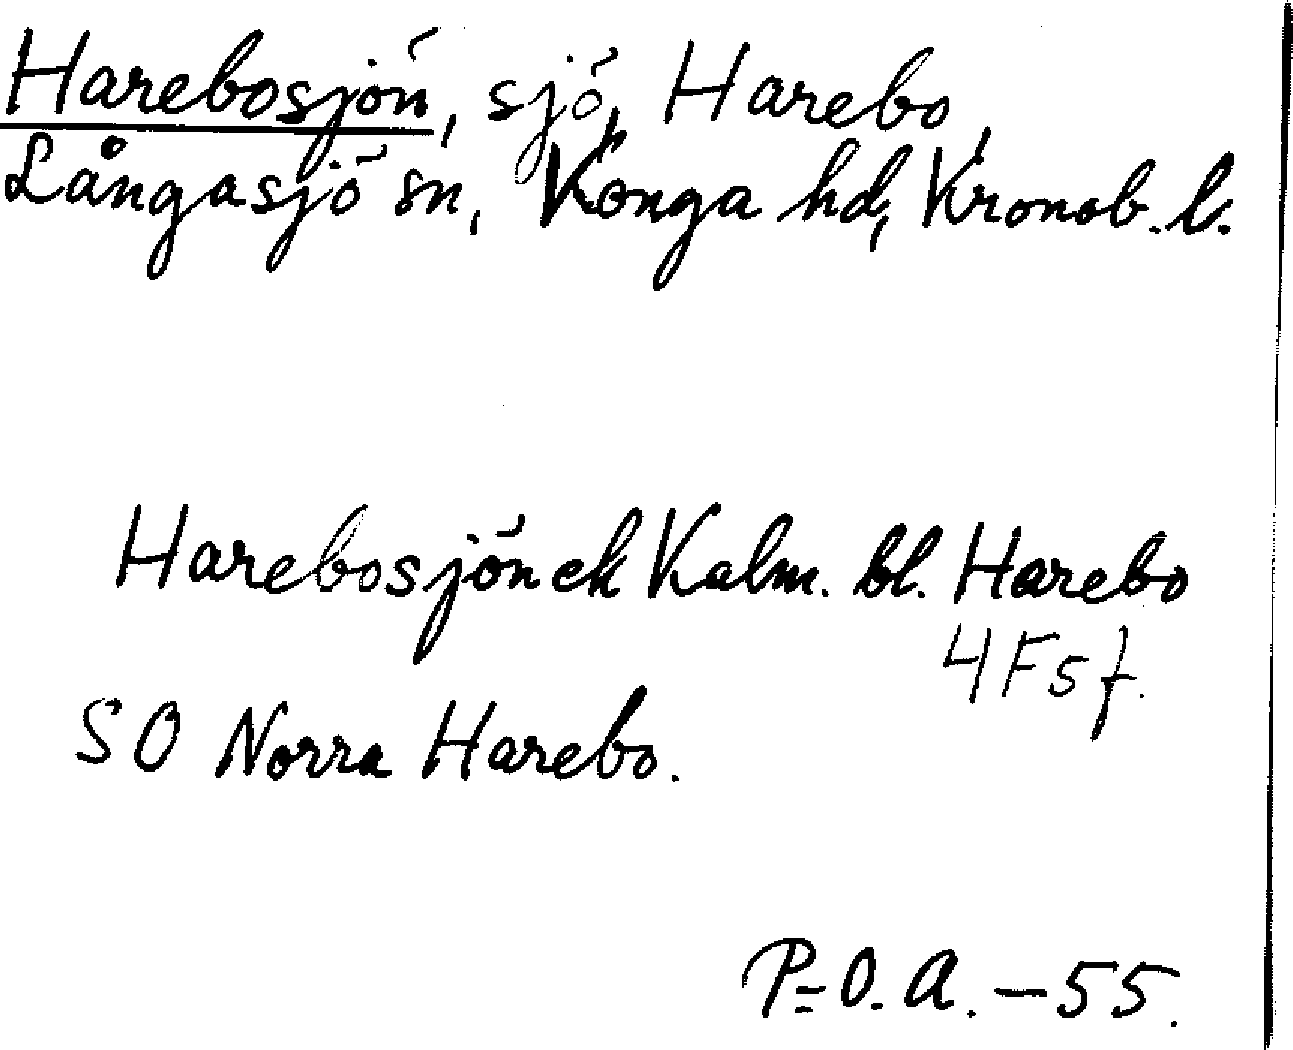 Harebosjön, sjö, Harebo,
Långasjö sn, Konga hd, Kronob. l.
Harebosjön ek Kalm. bl. Harebo
4F5f.
SO Norra Harebo.
P-O. A. - 55.